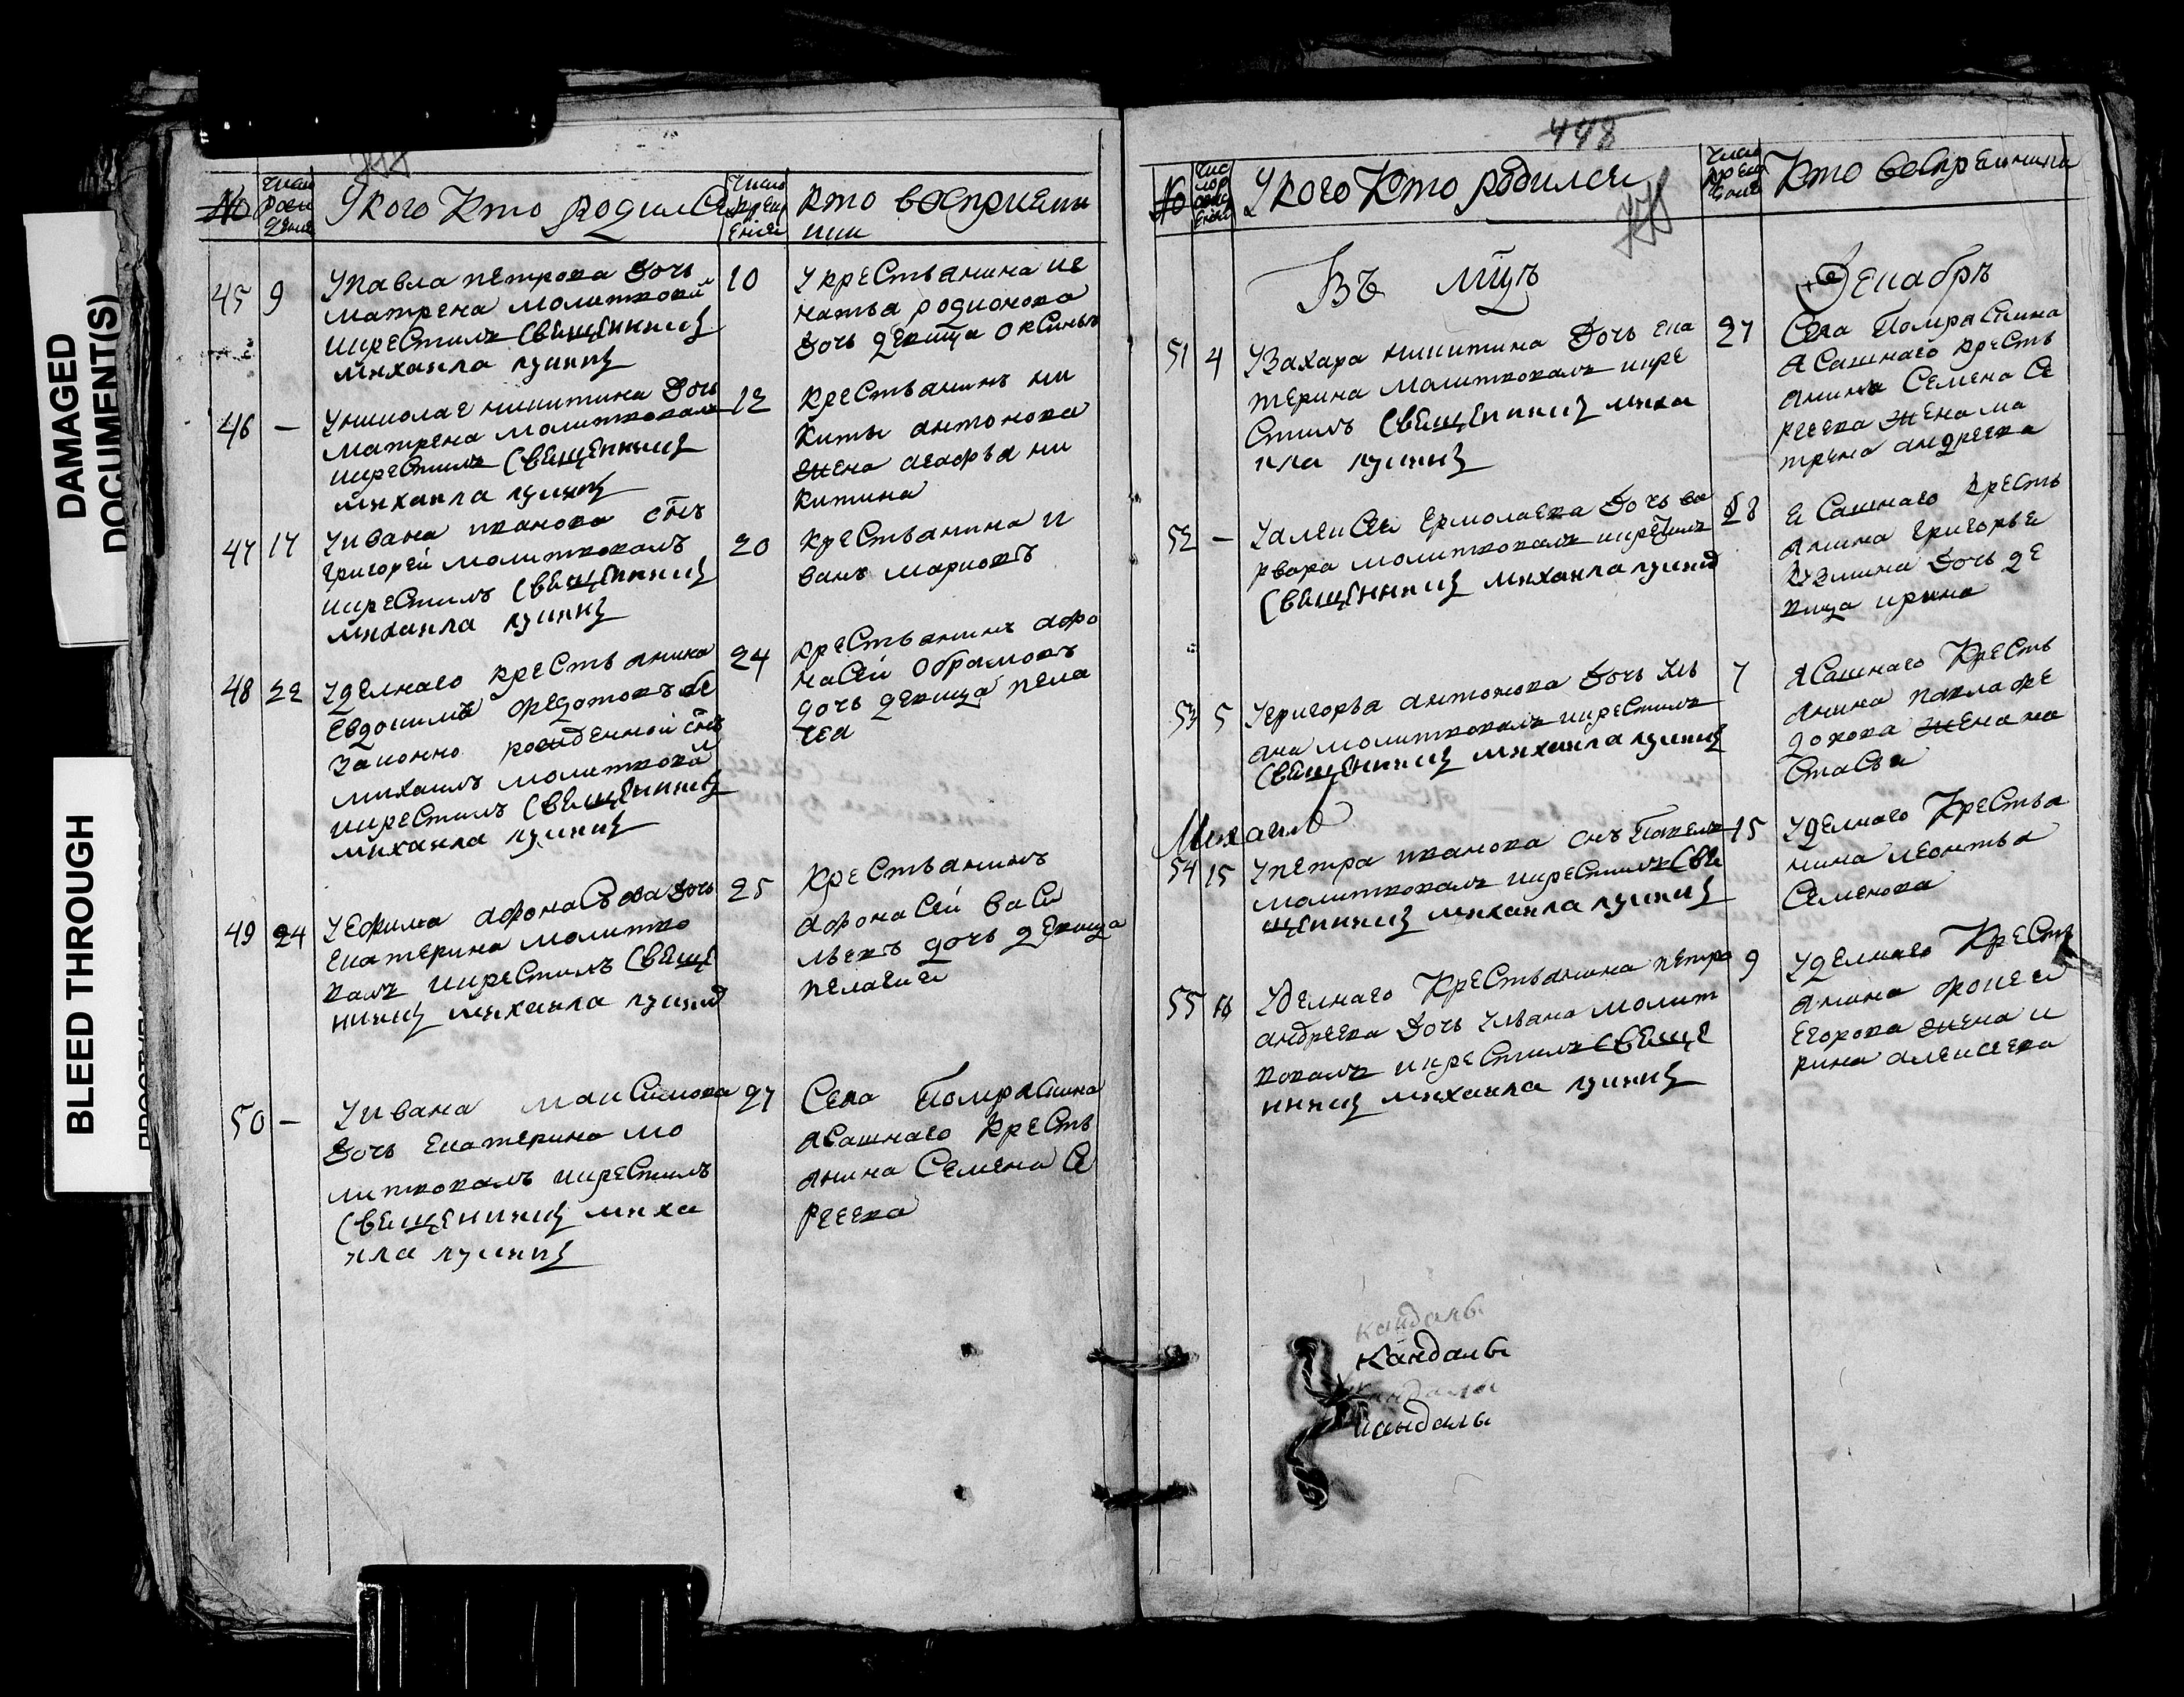 DAMAGED
DOCUMENT(S)
BLEED THROUGH
№
Число рожденія
У кого Кто родился
Число крещенія
Кто восприемники
45 9
У павла петрова Дочь
матрена молитвовалъ
икрестилъ Священникъ
михаила лукинъ
10
У крестьянина иг
натья родионова
Дочь девица оксинья
46 —
У николае никитина Дочь
матрена молитвовалъ
икрестилъ Священникъ
михаила лукинъ
12
крестьянинъ ни
киты антонова
жена агафья ни
китина
47 17
У ивана иванова снъ
григорей молитвовалъ
икрестилъ Священникъ
михаила лукинъ
20
крестьянина и
ванъ марковъ
48 22
Уделнаго крестьянина
Евдокимъ федотовъ бе
законно рожденной снъ
михаилъ молитвовалъ
икрестилъ Священникъ
михаила лукинъ
24
крестьянинъ афо
насей обрамовъ
дочь девица пела
гея
49 24
У Ефима афонасьева дочь
Екатерина молитво
валъ икрестилъ Свяще
нникъ михаила лукинъ
25
крестьянинъ
афонасей васи
льевъ дочь девица
пелагиея
50 —
У ивана максимова
Дочь Екатерина мо
литвовалъ икрестилъ
Священникъ миха
ила лукинъ
27
Села
ясашнаго кресть
янина Семена Се
ргеева
448
№
Число рожденія
У кого Кто родился
Число крещенія
Кто восприемники
Въ мцѣ
Декабрѣ
51 4
У Захара никитина Дочь ека
терина молитвовалъ икре
стилъ Священникъ миха
ила лукинъ
27
Села
ясашнаго кресть
янина Семена Се
ргеева жена ма
трена андреева
52 —
У алексея Ермолаева Дочь ва
рвара молитвовалъ икрестилъ
Священникъ михаила лукинъ
28
ясашнаго кресть
янина григорья
кузмина Дочь де
вица ирина
53 5
У григорья антонова Дочь Ул
яна молитвовалъ икрестилъ
Священникъ михаила лукинъ
7
ясашнаго кресть
янина павла фе
дорова жена на
стасья
Михаилъ
54 15
У петра иванова снъ Павелъ
молитвовалъ икрестилъ Свя
щенникъ михаила лукинъ
15
Уделнаго крестья
нина леонтья
Семенова
55 18
Уделнаго крестьянина петра
андреева Дочь Ульяна молит
вовалъ икрестилъ Свяще
нникъ михаила лукинъ
9
Уделнаго кресть
янина фокея
егорова жена и
рина алексеева
кандалы
кандалы
кандалы
кандалы